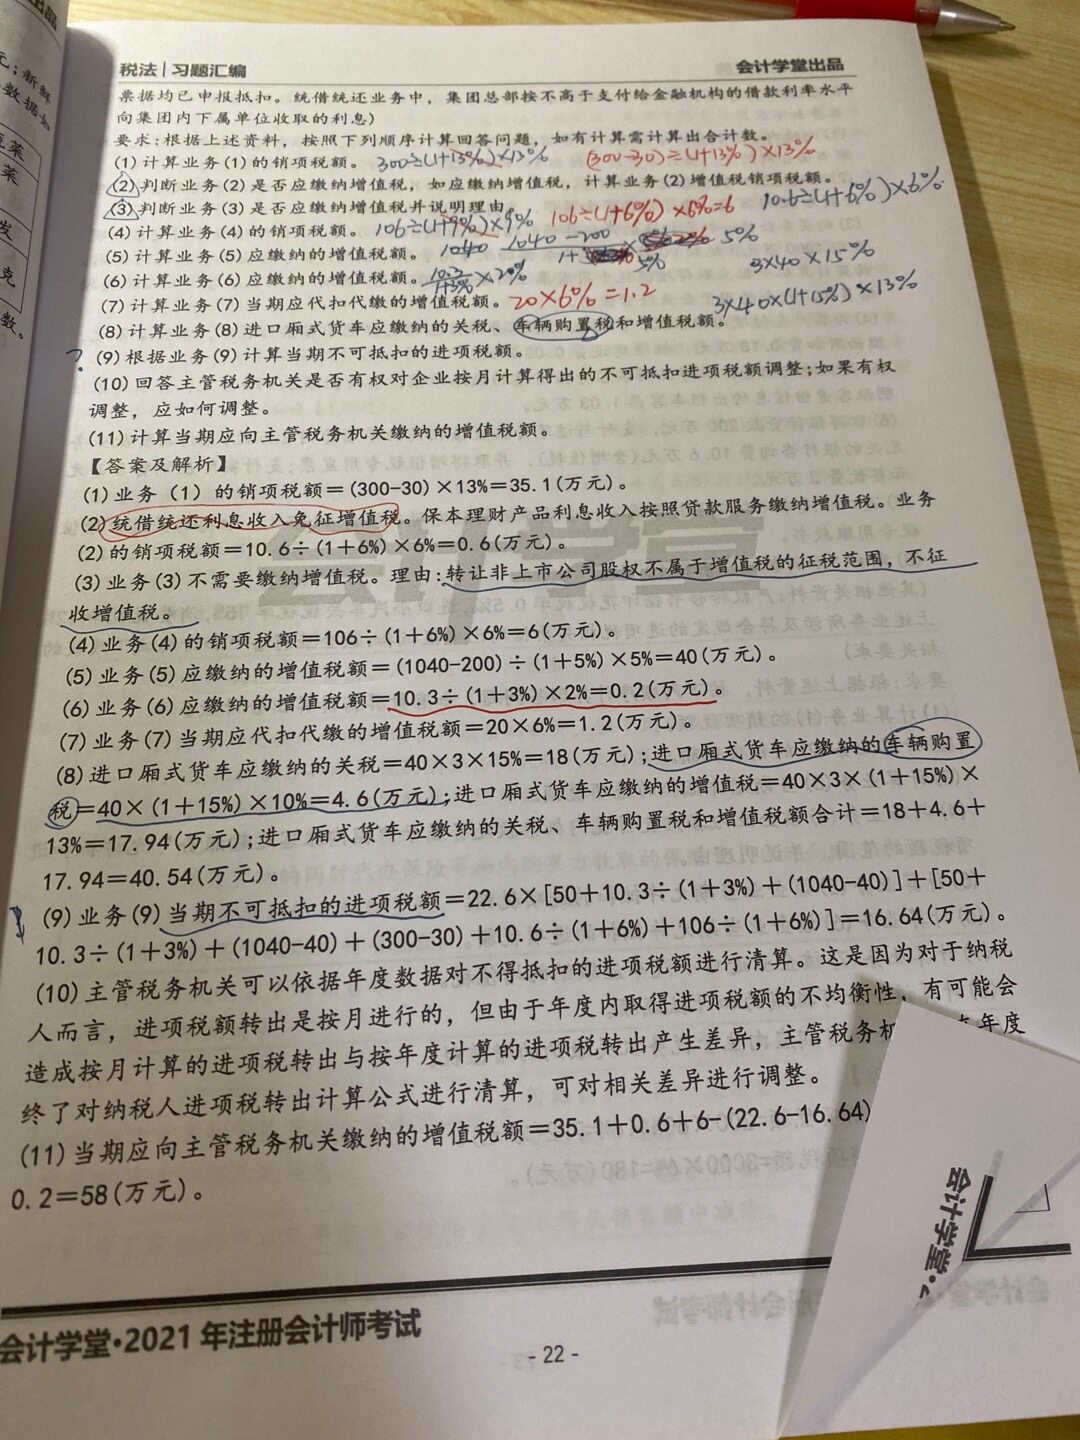 出品
元；新鲜
数据如
莱
发
克
数。
税法｜习题汇编
会计学堂出品
票据均已申报抵扣。统借统还业务中，集团总部按不高于支付给金融机构的借款利率水平
向集团内下属单位收取的利息）
要求：根据上述资料，按照下列顺序计算回答问题，如有计算需计算出合计数。
(1)计算业务(1)的销项税额。 300÷(1+13%)×13% (300-30)÷(1+13%)×13%
(2)判断业务(2)是否应缴纳增值税，如应缴纳增值税，计算业务(2)增值税销项税额。
(3)判断业务(3)是否应缴纳增值税并说明理由。 10.6÷(1+6%)×6%
(4)计算业务(4)的销项税额。 106÷(1+9%)×9% 106÷(1+6%)×6%=6
(5)计算业务(5)应缴纳的增值税额。 1040 1040-200 5%
(6)计算业务(6)应缴纳的增值税额。 10.3/1+3%×2% 5% 3×40×15%
(7)计算业务(7)当期应代扣代缴的增值税额。 20×6%=1.2 3×40×(1+15%)×13%
(8)计算业务(8)进口厢式货车应缴纳的关税、车辆购置税和增值税额。
? (9)根据业务(9)计算当期不可抵扣的进项税额。
(10)回答主管税务机关是否有权对企业按月计算得出的不可抵扣进项税额调整；如果有权
调整，应如何调整。
(11)计算当期应向主管税务机关缴纳的增值税额。
【答案及解析】
(1)业务（1）的销项税额＝(300-30)×13%＝35.1(万元)。
(2)统借统还利息收入免征增值税。保本理财产品利息收入按照贷款服务缴纳增值税。业务
(2)的销项税额＝10.6÷(1＋6%)×6%＝0.6(万元)。
(3)业务(3)不需要缴纳增值税。理由：转让非上市公司股权不属于增值税的征税范围，不征
收增值税。
(4)业务(4)的销项税额＝106÷(1＋6%)×6%＝6(万元)。
(5)业务(5)应缴纳的增值税额＝(1040-200)÷(1＋5%)×5%＝40(万元)。
(6)业务(6)应缴纳的增值税额＝10.3÷(1＋3%)×2%＝0.2(万元)。
(7)业务(7)当期应代扣代缴的增值税额＝20×6%＝1.2(万元)。
(8)进口厢式货车应缴纳的关税＝40×3×15%＝18(万元)；进口厢式货车应缴纳的车辆购置
税＝40×(1＋15%)×10%＝4.6(万元)；进口厢式货车应缴纳的增值税＝40×3×(1＋15%)×
13%＝17.94(万元)；进口厢式货车应缴纳的关税、车辆购置税和增值税额合计＝18＋4.6＋
17.94＝40.54(万元)。
(9)业务(9)当期不可抵扣的进项税额＝22.6×[50＋10.3÷(1＋3%)＋(1040-40)]÷[50＋
10.3÷(1＋3%)＋(1040-40)＋(300-30)＋10.6÷(1＋6%)＋106÷(1＋6%)]＝16.64(万元)。
(10)主管税务机关可以依据年度数据对不得抵扣的进项税额进行清算。这是因为对于纳税
人而言，进项税额转出是按月进行的，但由于年度内取得进项税额的不均衡性，有可能会
造成按月计算的进项税转出与按年度计算的进项税转出产生差异，主管税务机 年度
终了对纳税人进项税转出计算公式进行清算，可对相关差异进行调整。
(11)当期应向主管税务机关缴纳的增值税额＝35.1＋0.6＋6-(22.6-16.64)
0.2＝58(万元)。
会计学堂·2021年注册会计师考试
- 22 -
会计学堂·2